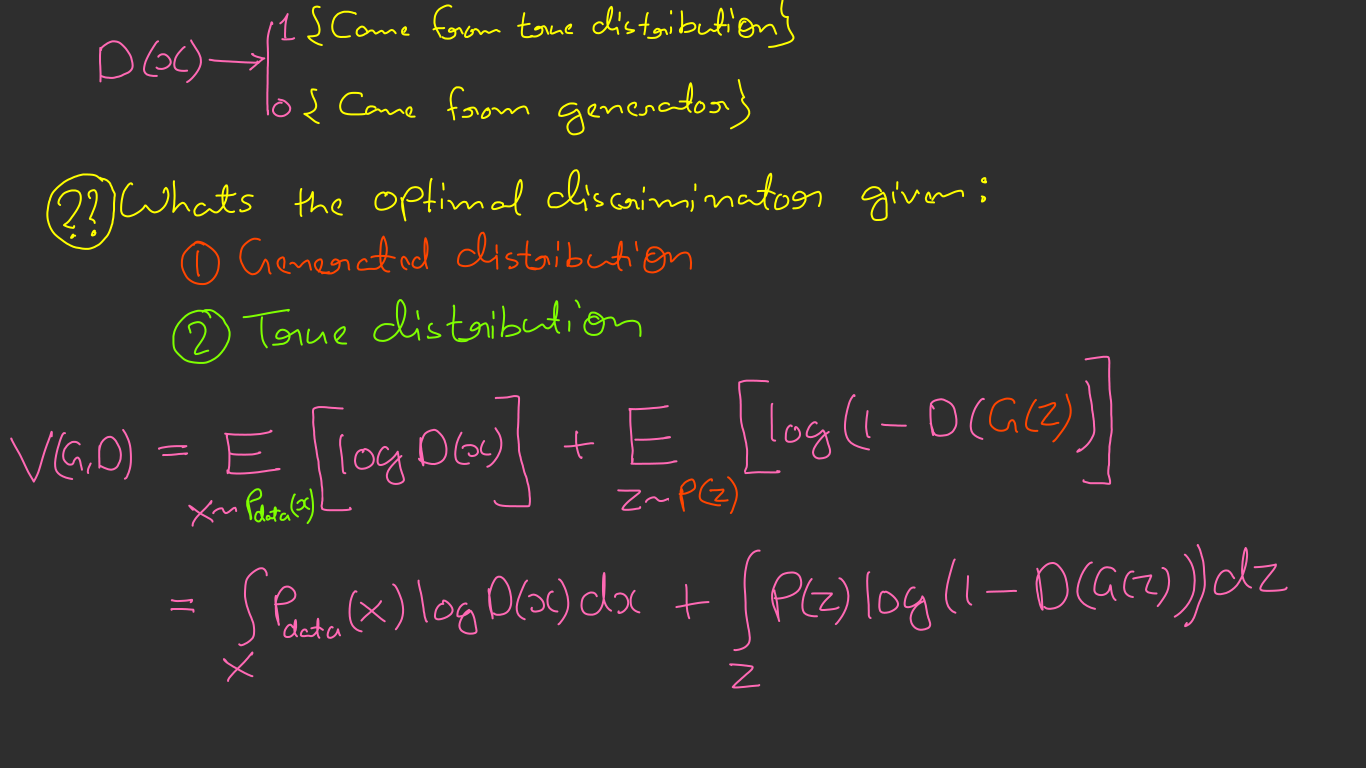 1 {Came from true distribution}
D(x) →
0 {Came from generator}
?? Whats the optimal discriminator given:
① Generated distribution
② True distribution
V(G,D) = E [log D(x)] + E [log(1 - D(G(z))]
x~Pdata(x) z~P(z)
= ∫ Pdata(x) log D(x) dx + ∫ P(z) log(1 - D(G(z))) dz
x z